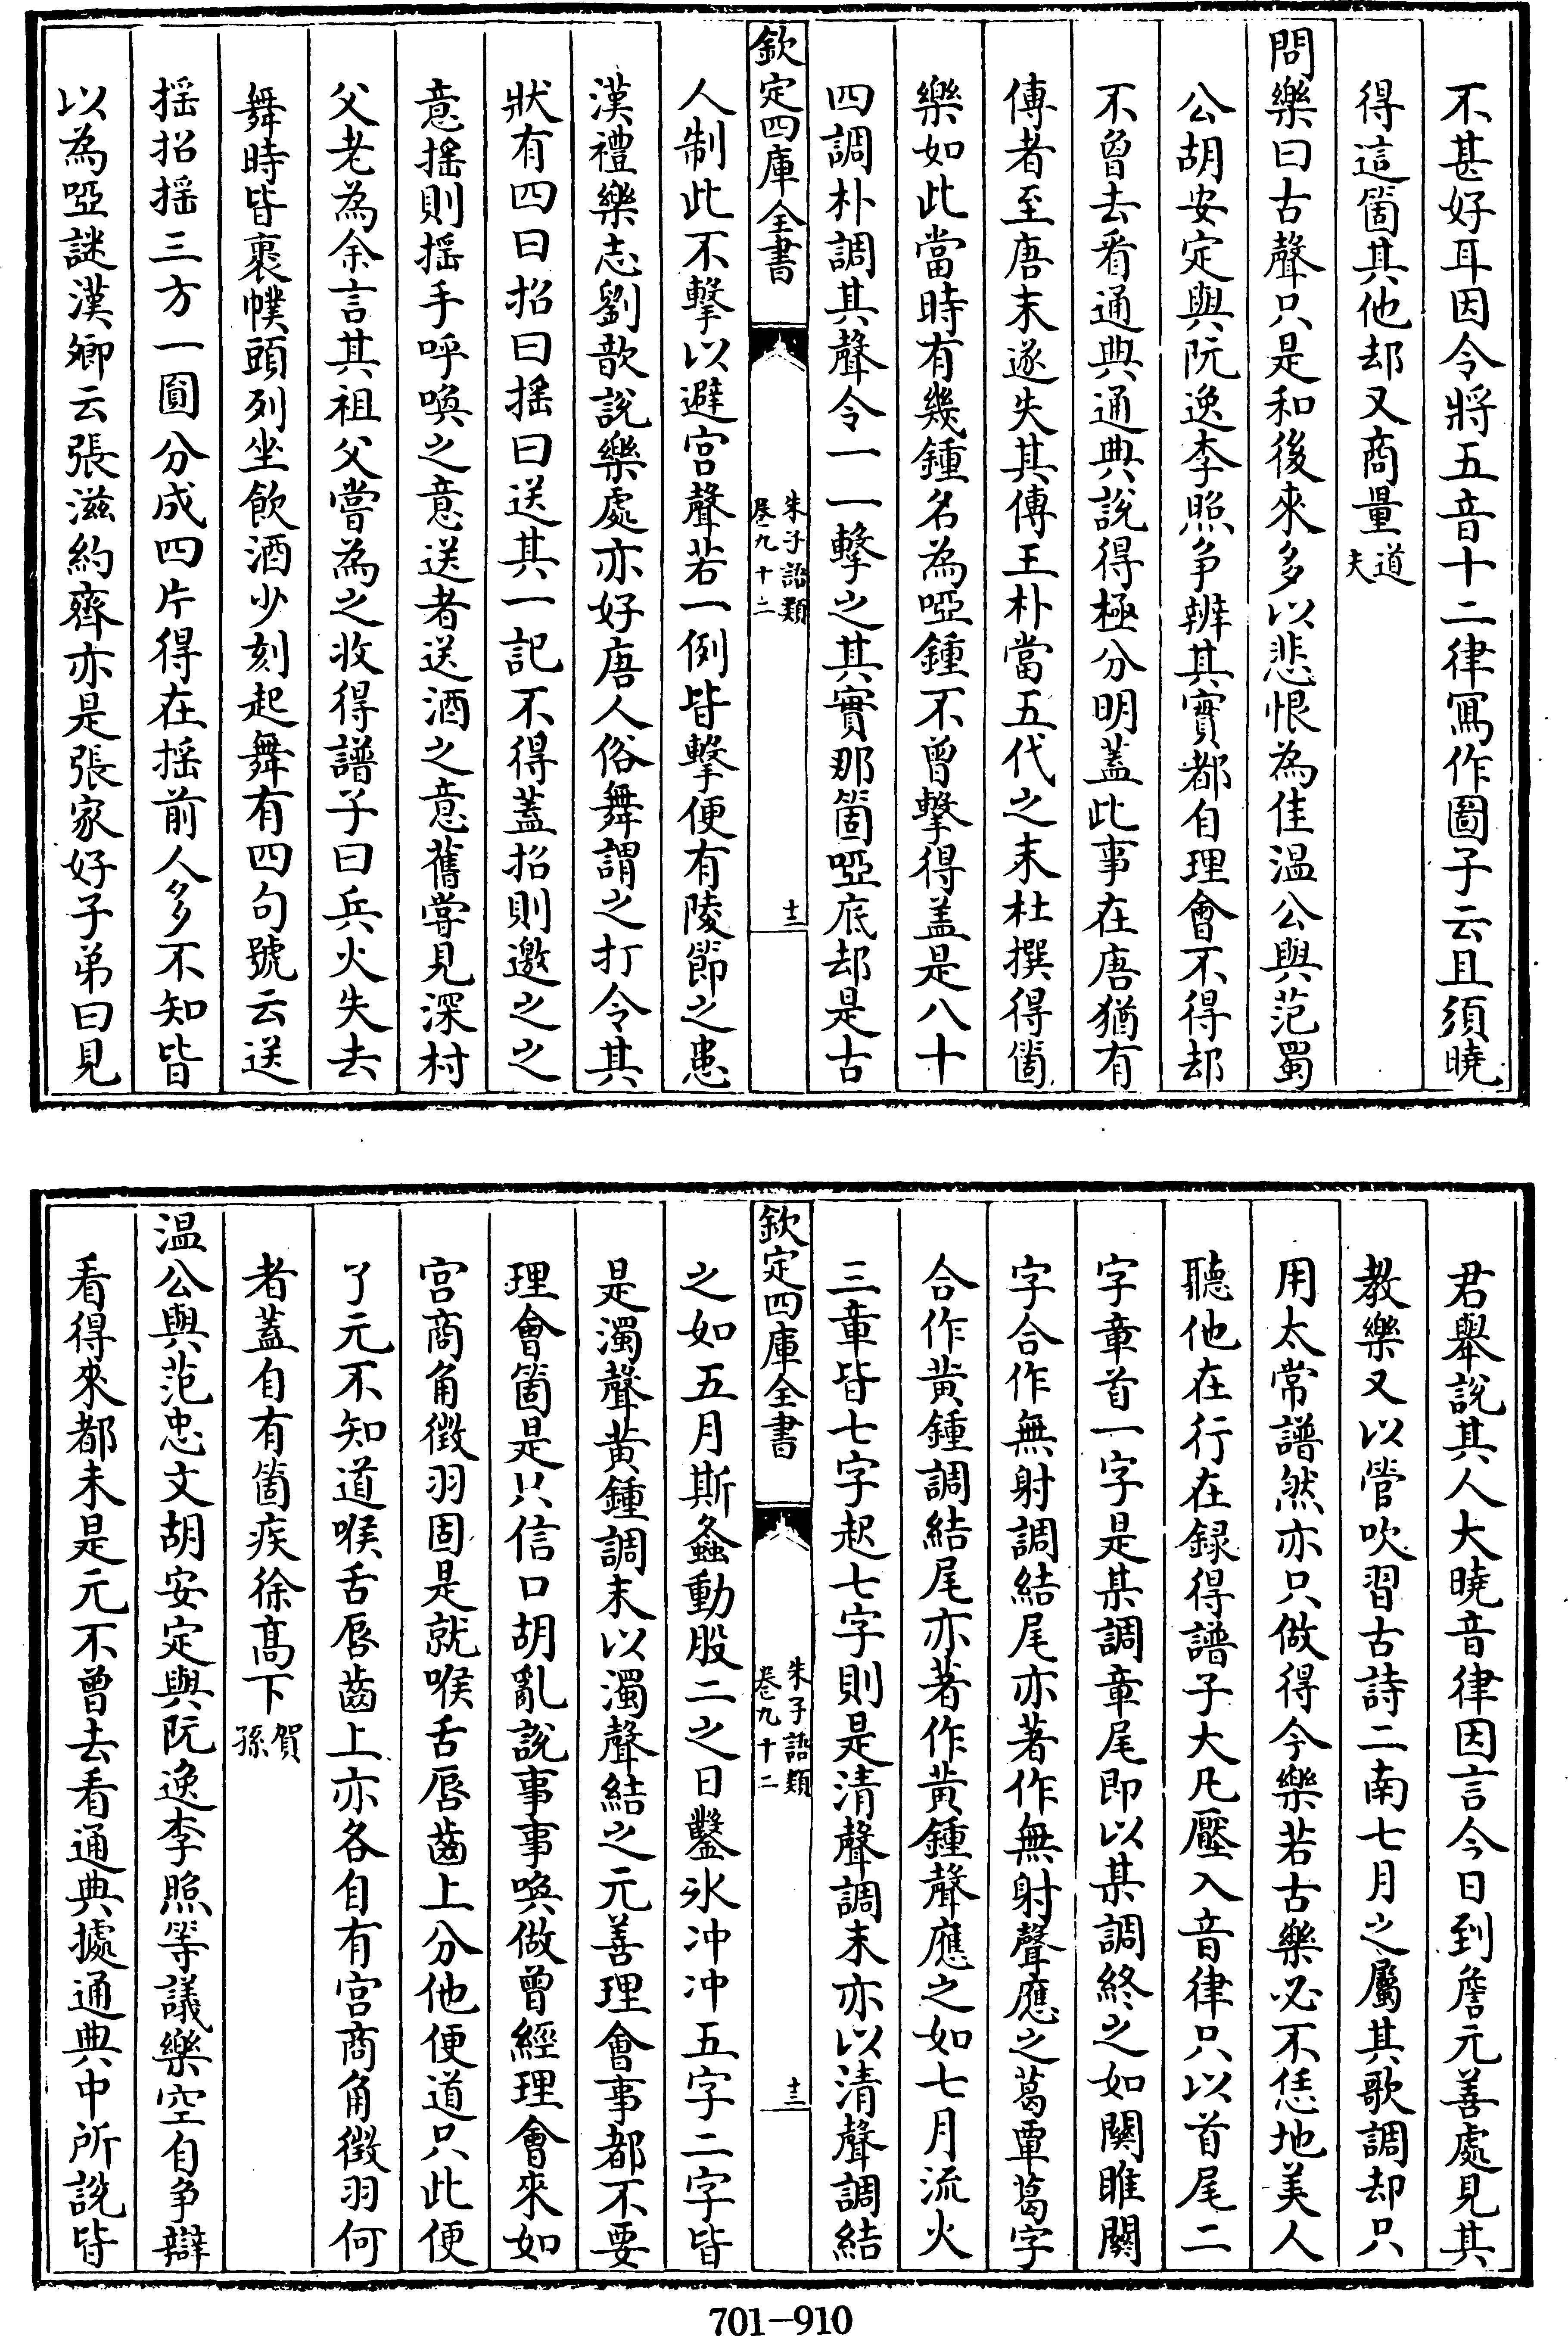 不甚好耳因令將五音十二律寫作圖子云且須曉
得這箇其他却又商量道夫
問樂曰古聲只是和後來多以悲恨為佳温公與范蜀
公胡安定與阮逸李照爭辨其實都自理會不得却
不曾去看通典通典說得極分明蓋此事在唐猶有
傳者至唐末遂失其傳王朴當五代之末杜撰得箇
樂如此當時有幾鍾名為啞鍾不曾擊得盖是八十
四調朴調其聲令一一擊之其實那箇啞底却是古
欽定四庫全書
朱子語類
卷九十二
十二
人制此不擊以避宫聲若一例皆擊便有陵節之患
漢禮樂志劉歆說樂處亦好唐人俗舞謂之打令其
狀有四曰招曰揺曰送其一記不得蓋招則邀之之
意揺則揺手呼喚之意送者送酒之意舊嘗見深村
父老為余言其祖父嘗為之收得譜子曰兵火失去
舞時皆裹幞頭列坐飲酒少刻起舞有四句號云送
揺招揺三方一圓分成四片得在揺前人多不知皆
以為啞謎漢卿云張滋約齋亦是張家好子弟曰見
君舉說其人大曉音律因言今日到詹元善處見其
教樂又以管吹習古詩二南七月之屬其歌調却只
用太常譜然亦只做得今樂若古樂必不恁地美人
聽他在行在録得譜子大凡壓入音律只以首尾二
字章首一字是某調章尾即以某調終之如關雎關
字合作無射調結尾亦著作無射聲應之葛覃葛字
合作黄鍾調結尾亦著作黄鍾聲應之如七月流火
三章皆七字起七字則是清聲調末亦以清聲調結
欽定四庫全書
朱子語類
卷九十二
十三
之如五月斯螽動股二之日鑿氷冲冲五字二字皆
是濁聲黄鍾調末以濁聲結之元善理會事都不要
理會箇是只信口胡亂說事事喚做曾經理會來如
宫商角徵羽固是就喉舌唇齒上分他便道只此便
了元不知道喉舌唇齒上亦各自有宫商角徵羽何
者蓋自有箇疾徐高下賀孫
温公與范忠文胡安定與阮逸李照等議樂空自爭辯
看得來都未是元不曾去看通典據通典中所說皆
701-910